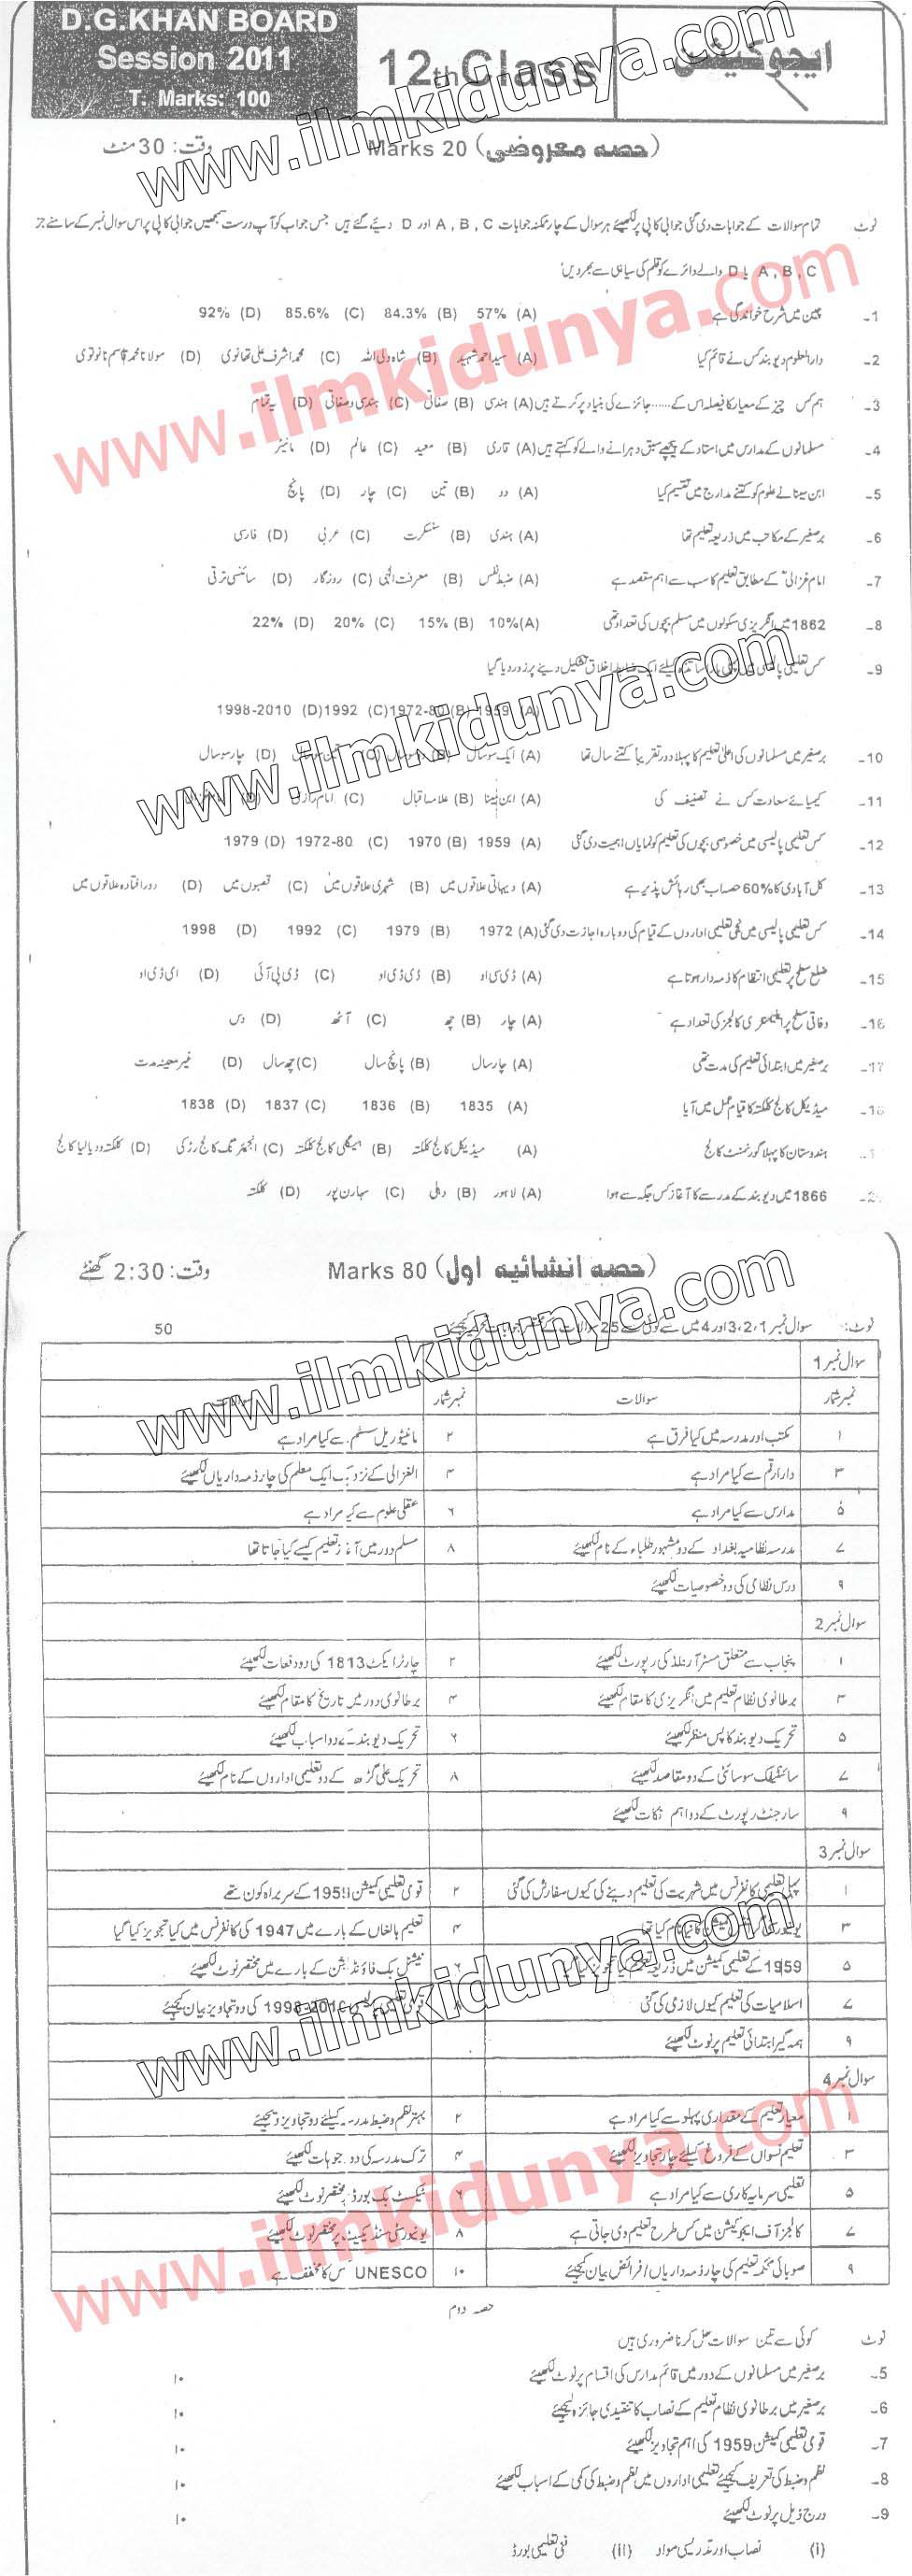 D.G.KHAN BOARD
Session 2011
T. Marks: 100
12th Class
ایجوکیشن
(حصہ معروضی) Marks 20 وقت: 30 منٹ
نوٹ تمام سوالات کے جوابات دی گئی جوابی کاپی پر لکھیئے ہر سوال کے چار ممکنہ جوابات A , B , C اور D دیئے گئے ہیں جس جواب کو آپ درست سمجھیں جوابی کاپی پر اس سوال نمبر کے سامنے
A , B , C یا D والے دائرے کو قلم کی سیاہی سے بھر دیں
1- چین میں شرح خواندگی ہے (A) 57% (B) 84.3% (C) 85.6% (D) 92%
2- دارالعلوم دیوبند کس نے قائم کیا (A) سید احمد شہید (B) شاہ ولی اللہ (C) محمد اشرف علی تھانوی (D) مولانا محمد قاسم نانوتوی
3- ہم کس چیز کے معیار کا فیصلہ اس کے ...... جائزے کی بنیاد پر کرتے ہیں (A) ہندی (B) صفاتی (C) ہندی و صفاتی (D) یہ تمام
4- مسلمانوں کے مدارس میں استاد کے پیچھے سبق دہرانے والے کو کہتے ہیں (A) قاری (B) معید (C) عالم (D) مانیٹر
5- ابن سینا نے علوم کو کتنے مدارج میں تقسیم کیا (A) دو (B) تین (C) چار (D) پانچ
6- برصغیر کے مکاتب میں ذریعہ تعلیم تھا (A) ہندی (B) سنسکرت (C) عربی (D) فارسی
7- امام غزالی کے مطابق تعلیم کا سب سے اہم مقصد ہے (A) ضبط نفس (B) معرفت الٰہی (C) روزگار (D) سائنسی ترقی
8- 1862 میں انگریزی سکولوں میں مسلم بچوں کی تعداد تھی (A) 10% (B) 15% (C) 20% (D) 22%
9- کس تعلیمی پالیسی میں پہلی بار اساتذہ کیلئے ایک ضابطہ اخلاق تشکیل دینے پر زور دیا گیا
(A) 1959 (B) 1972-80 (C) 1992 (D) 1998-2010
10- برصغیر میں مسلمانوں کی اعلیٰ تعلیم کا پہلا دور تقریباً کتنے سال تھا (A) ایک سو سال (B) دو سو سال (C) تین سو سال (D) چار سو سال
11- کیمیائے سعادت کس نے تصنیف کی (A) ابن سینا (B) علامہ اقبال (C) امام رازی (D)
12- کس تعلیمی پالیسی میں خصوصی بچوں کی تعلیم کو نمایاں اہمیت دی گئی (A) 1959 (B) 1970 (C) 1972-80 (D) 1979
13- کل آبادی کا 60% حصہ اب بھی رہائش پذیر ہے (A) دیہاتی علاقوں میں (B) شہری علاقوں میں (C) قصبوں میں (D) دور افتادہ علاقوں میں
14- کس تعلیمی پالیسی میں نجی تعلیمی اداروں کے قیام کی دوبارہ اجازت دی گئی (A) 1972 (B) 1979 (C) 1992 (D) 1998
15- ضلع سطح پر تعلیمی انتظام کا ذمہ دار ہوتا ہے (A) ڈی سی او (B) ڈی ڈی او (C) ڈی پی آئی (D) ای ڈی او
16- وفاقی سطح پر ایلیمنٹری کالجز کی تعداد ہے (A) چار (B) چھ (C) آٹھ (D) دس
17- برصغیر میں ابتدائی تعلیم کی مدت تھی (A) چار سال (B) پانچ سال (C) چھ سال (D) غیر معینہ مدت
18- میڈیکل کالج کلکتہ کا قیام عمل میں آیا (A) 1835 (B) 1836 (C) 1837 (D) 1838
ہندوستان کا پہلا گورنمنٹ کالج (A) میڈیکل کالج کلکتہ (B) ہیگلی کالج کلکتہ (C) انجینئرنگ کالج رڑکی (D) کلکتہ ودیالیا کالج
1866 میں دیوبند کے مدرسے کا آغاز کس جگہ سے ہوا (A) لاہور (B) دہلی (C) سہارن پور (D) کلکتہ
(حصہ انشائیہ اول) Marks 80 وقت: 2:30 گھنٹے
نوٹ: سوال نمبر 1، 2، 3 اور 4 میں سے کوئی سے 25 سوالات کے مختصر جوابات تحریر کیجیئے 50
سوال نمبر 1
نمبر شمار سوالات نمبر شمار سوالات
۱ مکتب اور مدرسہ میں کیا فرق ہے ۲ مانیٹوریل سسٹم سے کیا مراد ہے
۳ دار ارقم سے کیا مراد ہے ۴ الغزالی کے نزدیک ایک معلم کی چار ذمہ داریاں لکھیئے
۵ مدارس سے کیا مراد ہے ۶ عقلی علوم سے کیا مراد ہے
۷ مدرسہ نظامیہ بغداد کے دو مشہور طلباء کے نام لکھیئے ۸ مسلم دور میں آغاز تعلیم کیسے کیا جاتا تھا
۹ درس نظامی کی دو خصوصیات لکھیئے
سوال نمبر 2
۱ پنجاب سے متعلق مسٹر آرنلڈ کی رپورٹ لکھیئے ۲ چارٹر ایکٹ 1813 کی دو دفعات لکھیئے
۳ برطانوی نظام تعلیم میں انگریزی کا مقام لکھیئے ۴ برطانوی دور میں تاریخ کا مقام لکھیئے
۵ تحریک دیوبند کا پس منظر لکھیئے ۶ تحریک دیوبند کے دو اسباب لکھیئے
۷ سائنٹیفک سوسائٹی کے دو مقاصد لکھیئے ۸ تحریک علی گڑھ کے دو تعلیمی اداروں کے نام لکھیئے
۹ سارجنٹ رپورٹ کے دو اہم نکات لکھیئے
سوال نمبر 3
۱ پہلی تعلیمی کانفرنس میں شہریت کی تعلیم دینے کی کیوں سفارش کی گئی ۲ قومی تعلیمی کمیشن 1959 کے سربراہ کون تھے
۳ یونیورسٹی گرانٹس کمیشن کا کیا کام تھا ۴ تعلیم بالغاں کے بارے میں 1947 کی کانفرنس میں کیا تجویز کیا گیا
۵ 1959 کے تعلیمی کمیشن میں ذریعہ تعلیم کیا تجویز کیا گیا ۶ نیشنل بک فاؤنڈیشن کے بارے میں مختصر نوٹ لکھیئے
۷ اسلامیات کی تعلیم کیوں لازمی کی گئی ۸ قومی تعلیمی پالیسی 1998-2010 کی دو تجاویز بیان کیجیئے
۹ ہمہ گیر ابتدائی تعلیم پر نوٹ لکھیئے
سوال نمبر 4
۱ معیار تعلیم کے مقداری پہلو سے کیا مراد ہے ۲ بہتر نظم و ضبط مدرسہ کیلئے دو تجاویز دیجیئے
۳ تعلیم نسواں کے فروغ کیلئے چار تجاویز لکھیئے ۴ ترک مدرسہ کی دو وجوہات لکھیئے
۵ تعلیمی سرمایہ کاری سے کیا مراد ہے ۶ ٹیکسٹ بک بورڈ پر مختصر نوٹ لکھیئے
۷ کالجز آف ایجوکیشن میں کس طرح تعلیم دی جاتی ہے ۸ یونیورسٹی سنڈیکیٹ پر مختصر نوٹ لکھیئے
۹ صوبائی محکمہ تعلیم کی چار ذمہ داریاں/فرائض بیان کیجیئے ۱۰ UNESCO کس کا مخفف ہے
حصہ دوم
نوٹ کوئی سے تین سوالات حل کرنا ضروری ہیں
5- برصغیر میں مسلمانوں کے دور میں قائم مدارس کی اقسام پر نوٹ لکھیئے ۱۰
6- برصغیر میں برطانوی نظام تعلیم کے نصاب کا تنقیدی جائزہ لیجیئے ۱۰
7- قومی تعلیمی کمیشن 1959 کی اہم تجاویز لکھیئے ۱۰
8- نظم و ضبط کی تعریف کیجیئے تعلیمی اداروں میں نظم و ضبط کی کمی کے اسباب لکھیئے ۱۰
9- درج ذیل پر نوٹ لکھیئے ۱۰
(i) نصاب اور تدریسی مواد (ii) فنی تعلیمی بورڈ
www.ilmkidunya.com
www.ilmkidunya.com
www.ilmkidunya.com
www.ilmkidunya.com
www.ilmkidunya.com
www.ilmkidunya.com